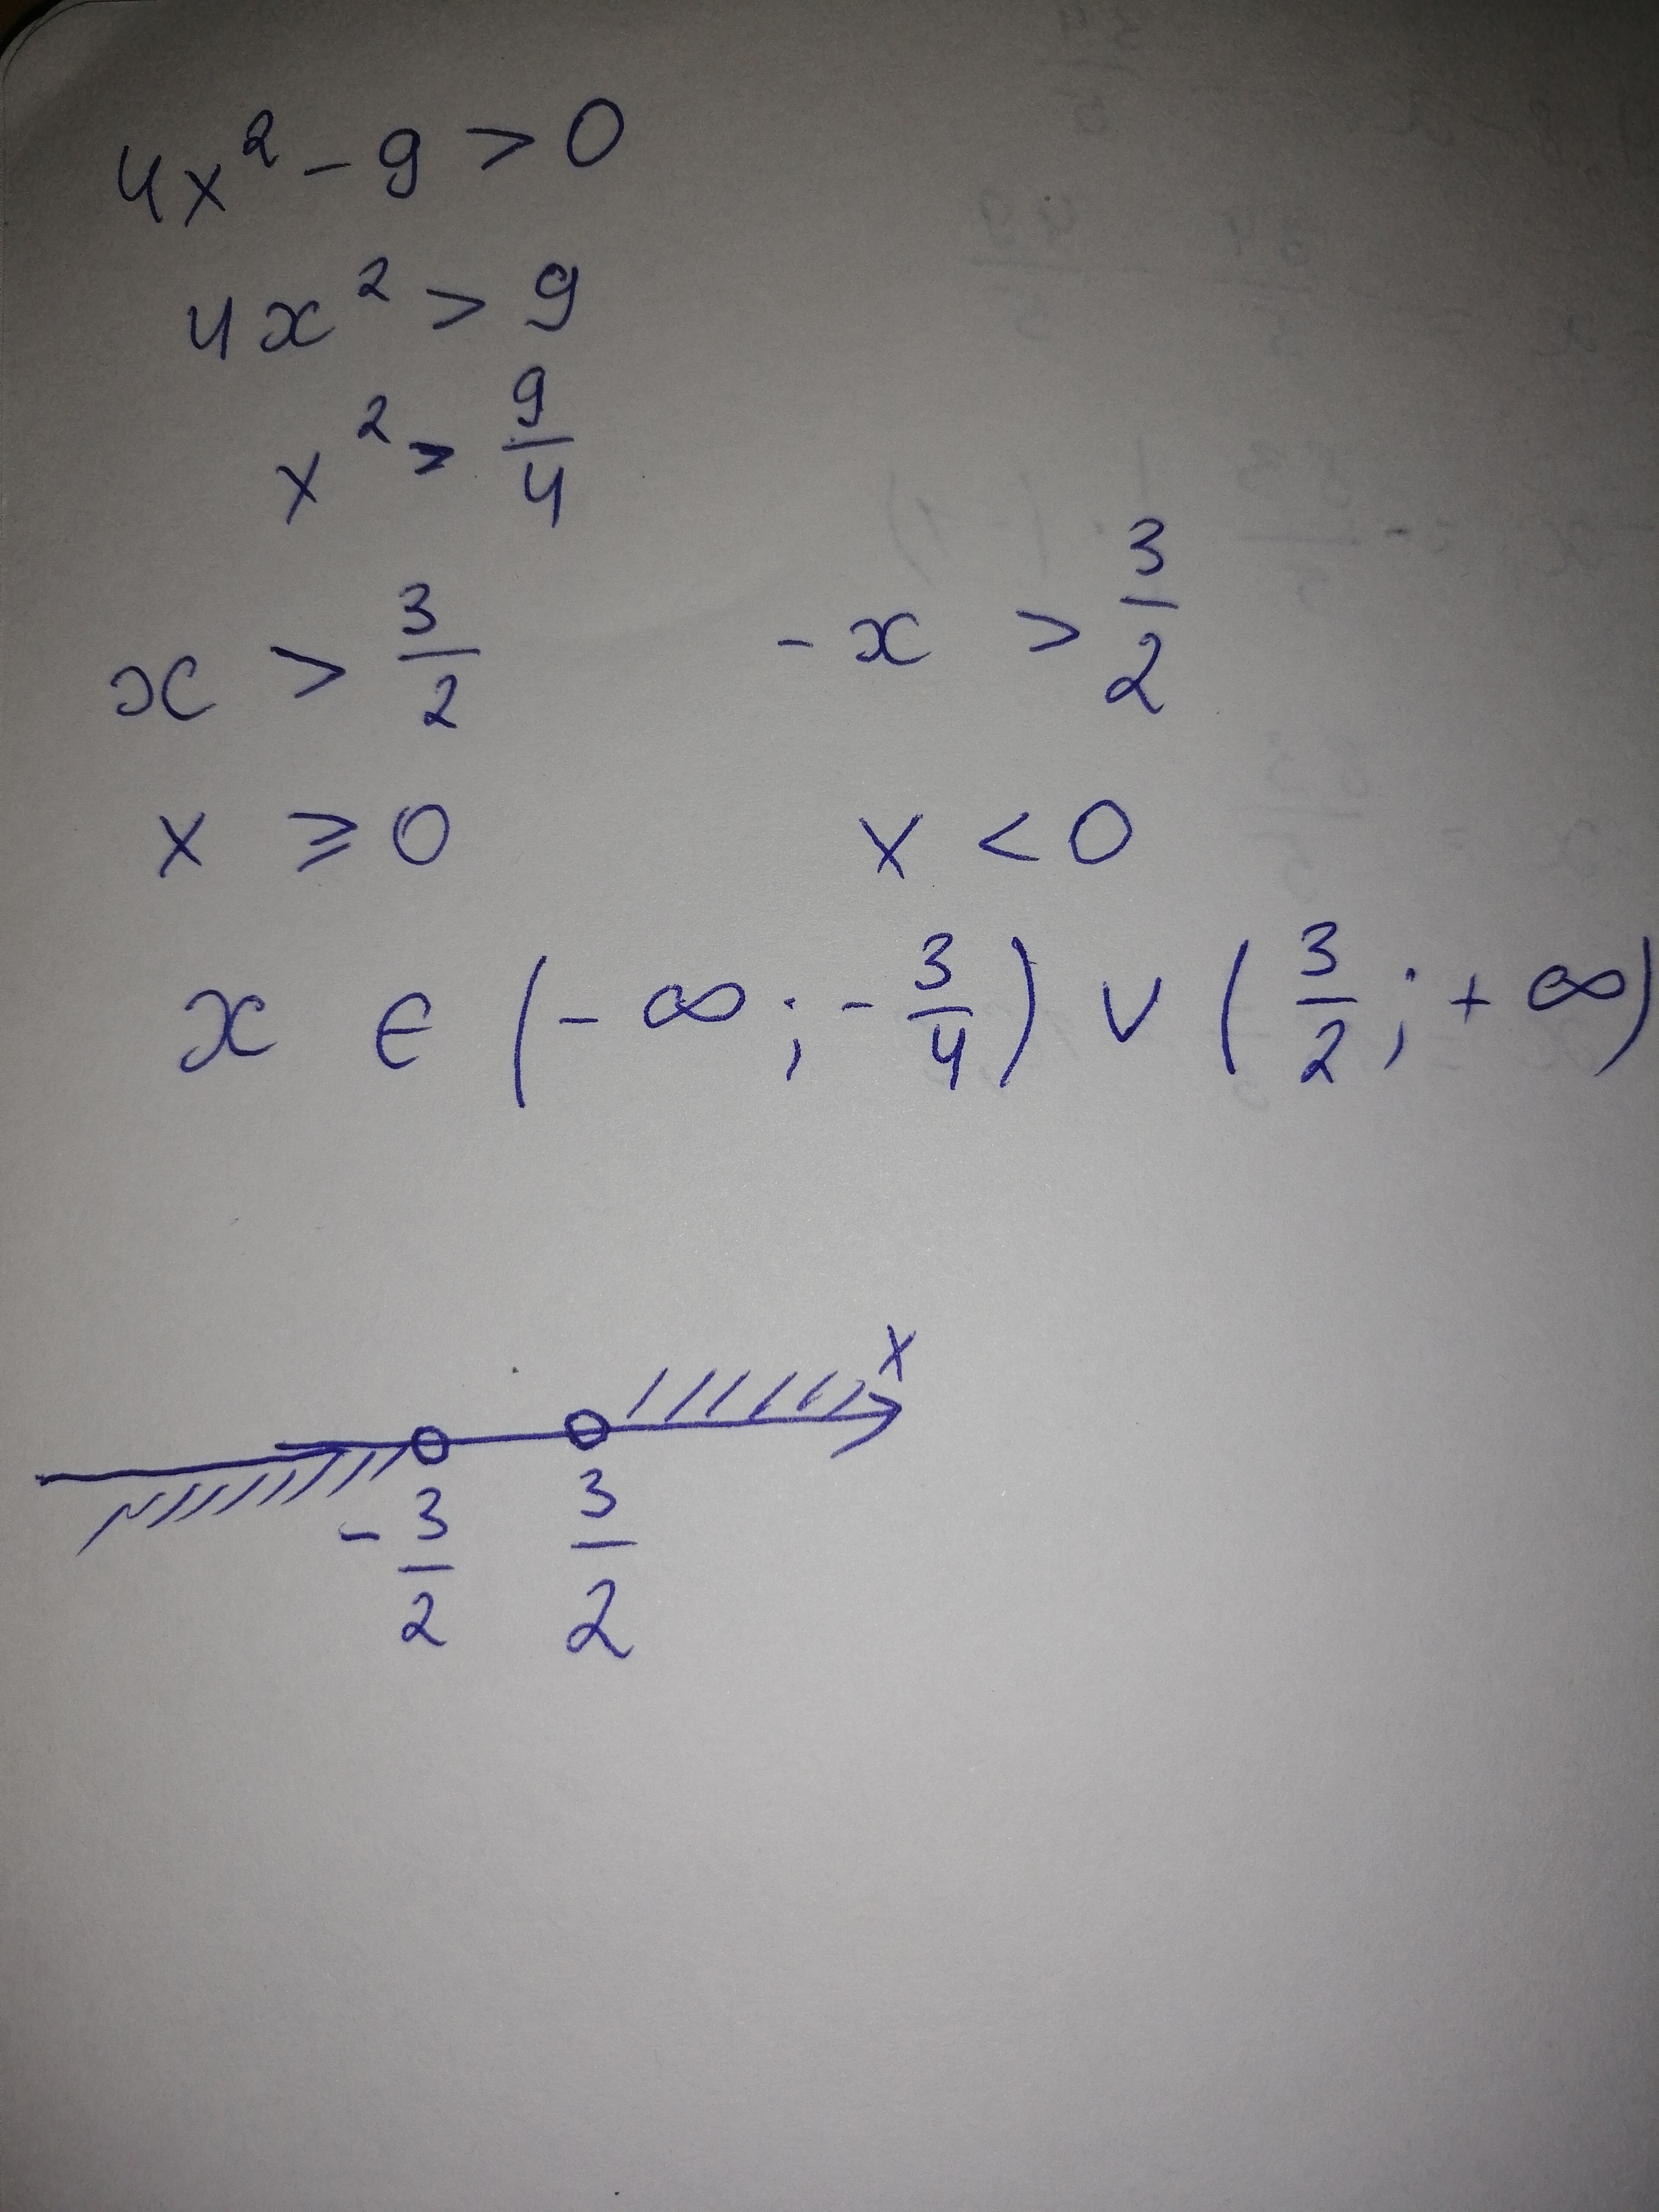 4x² - 9 > 0
4x² > 9
x² > 9/4
x > 3/2 -x > 3/2
x ≥ 0 x < 0
x ∈ (-∞; -3/4) ∨ (3/2; +∞)
x
-3/2 3/2